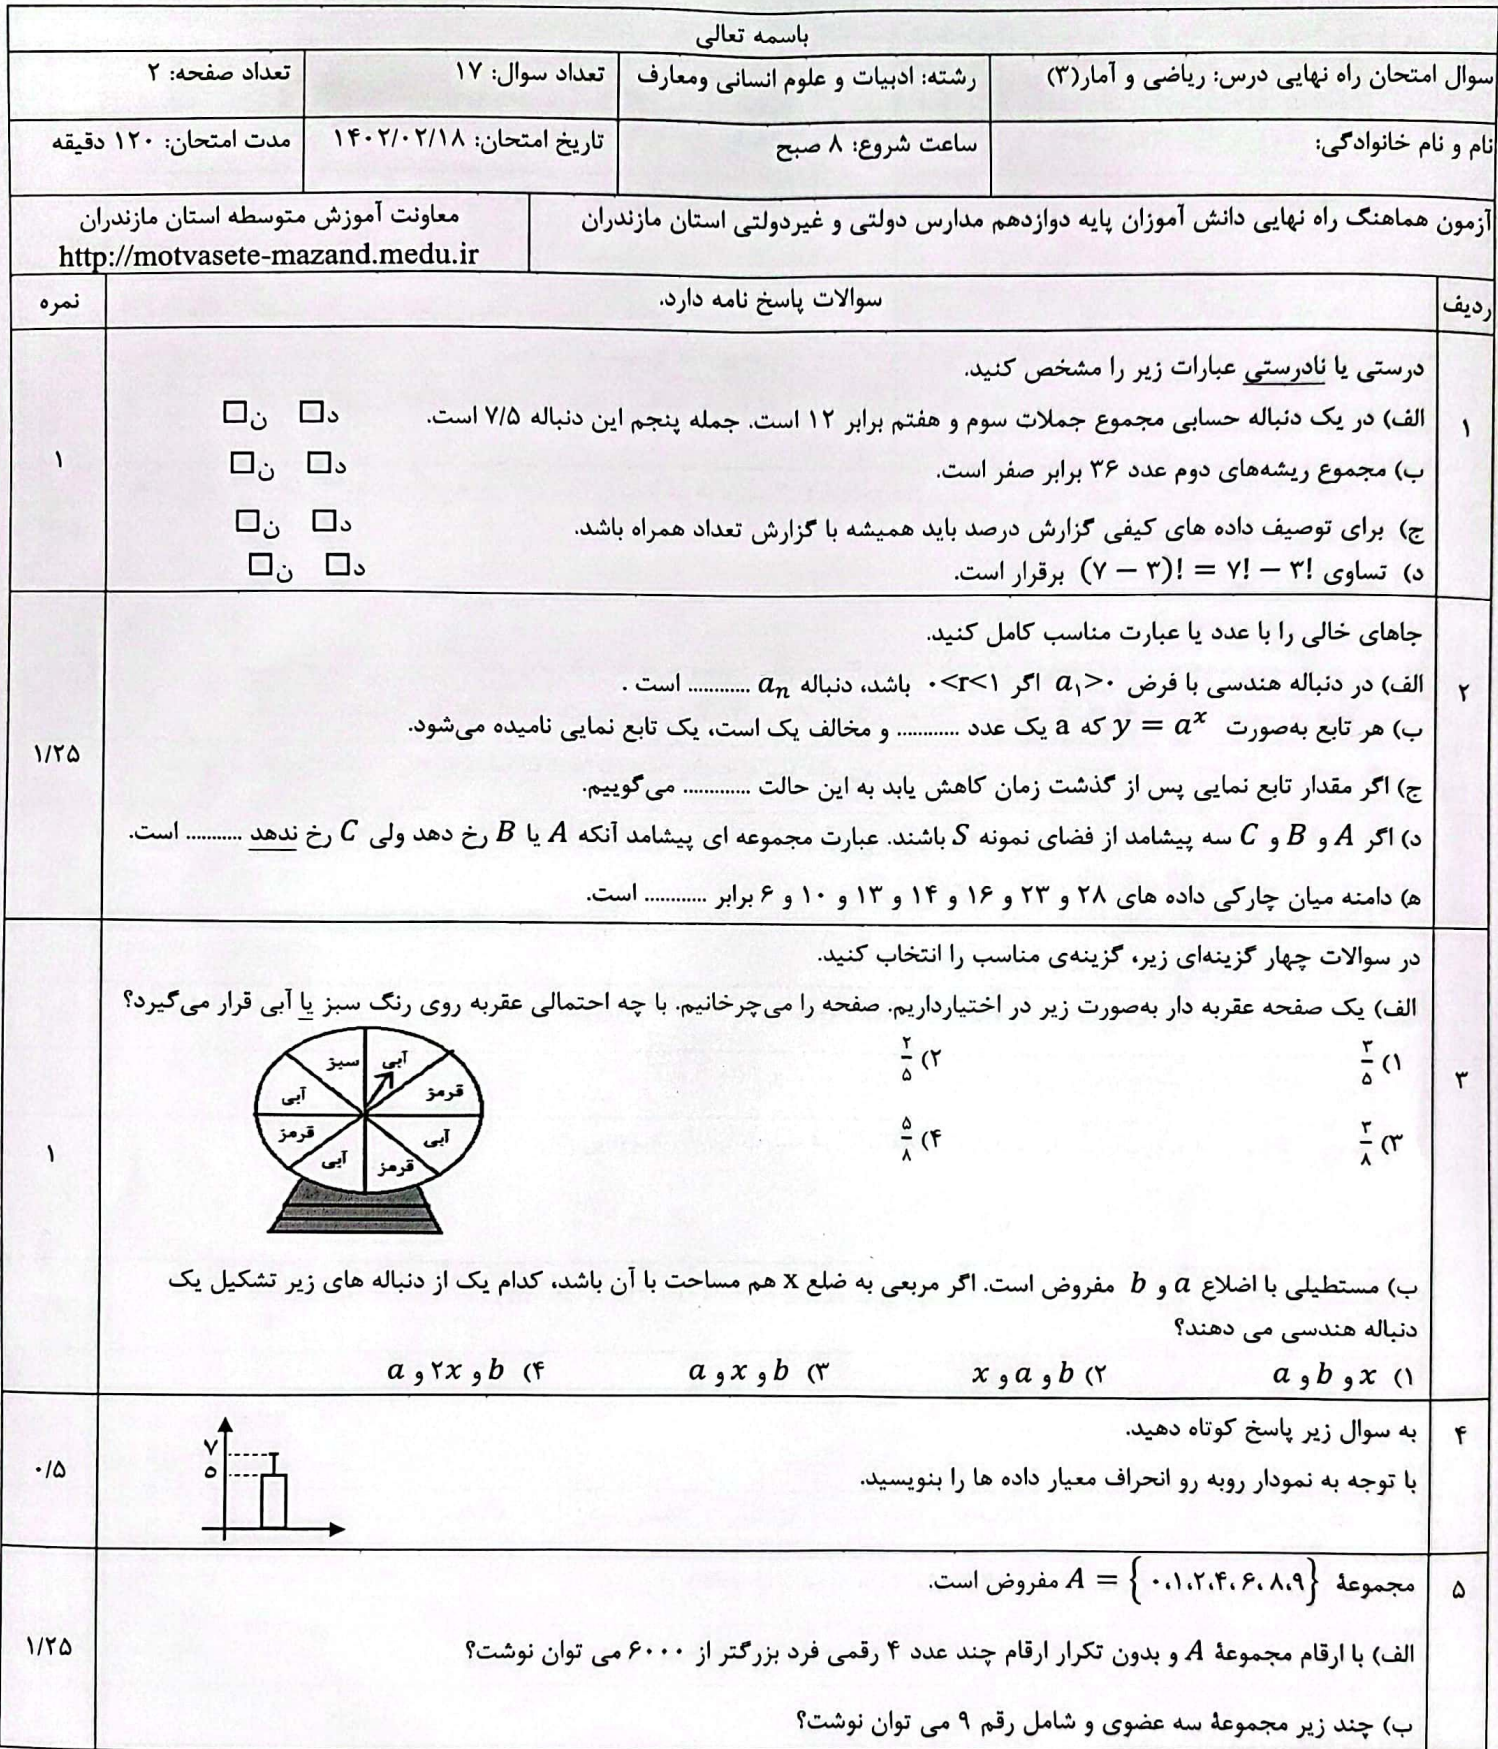 باسمه تعالی
سوال امتحان راه نهایی درس: ریاضی و آمار(۳) رشته: ادبیات و علوم انسانی ومعارف تعداد سوال: ۱۷ تعداد صفحه: ۲
نام و نام خانوادگی: ساعت شروع: ۸ صبح تاریخ امتحان: ۱۴۰۲/۰۲/۱۸ مدت امتحان: ۱۲۰ دقیقه
آزمون هماهنگ راه نهایی دانش آموزان پایه دوازدهم مدارس دولتی و غیردولتی استان مازندران معاونت آموزش متوسطه استان مازندران
http://motvasete-mazand.medu.ir
ردیف سوالات پاسخ نامه دارد. نمره
درستی یا نادرستی عبارات زیر را مشخص کنید.
۱ الف) در یک دنباله حسابی مجموع جملات سوم و هفتم برابر ۱۲ است. جمله پنجم این دنباله ۷/۵ است. د□ ن□
ب) مجموع ریشه‌های دوم عدد ۳۶ برابر صفر است. د□ ن□ ۱
ج) برای توصیف داده های کیفی گزارش درصد باید همیشه با گزارش تعداد همراه باشد. د□ ن□
د) تساوی (۷ − ۳)! = ۷! − ۳! برقرار است. د□ ن□
جاهای خالی را با عدد یا عبارت مناسب کامل کنید.
۲ الف) در دنباله هندسی با فرض a₁>۰ اگر ۰<r<۱ باشد، دنباله aₙ ............ است .
ب) هر تابع به‌صورت y = aˣ که a یک عدد ............ و مخالف یک است، یک تابع نمایی نامیده می‌شود. ۱/۲۵
ج) اگر مقدار تابع نمایی پس از گذشت زمان کاهش یابد به این حالت ............ می‌گوییم.
د) اگر A و B و C سه پیشامد از فضای نمونه S باشند. عبارت مجموعه ای پیشامد آنکه A یا B رخ دهد ولی C رخ ندهد ........... است.
ه) دامنه میان چارکی داده های ۲۸ و ۲۳ و ۱۶ و ۱۴ و ۱۳ و ۱۰ و ۶ برابر ............ است.
در سوالات چهار گزینه‌ای زیر، گزینه‌ی مناسب را انتخاب کنید.
الف) یک صفحه عقربه دار به‌صورت زیر در اختیارداریم. صفحه را می‌چرخانیم. با چه احتمالی عقربه روی رنگ سبز یا آبی قرار می‌گیرد؟
۳ ۱) ۳/۵ ۲) ۲/۵
۳) ۳/۸ ۴) ۵/۸ ۱
سبز آبی
آبی قرمز
قرمز آبی
آبی قرمز
ب) مستطیلی با اضلاع a و b مفروض است. اگر مربعی به ضلع x هم مساحت با آن باشد، کدام یک از دنباله های زیر تشکیل یک
دنباله هندسی می دهند؟
۱) x و b و a ۲) b و a و x ۳) b و x و a ۴) b و ۲x و a
۴ به سوال زیر پاسخ کوتاه دهید.
با توجه به نمودار روبه رو انحراف معیار داده ها را بنویسید. ۰/۵
۷
۵
۵ مجموعهٔ A = {۰،۱،۲،۴،۶،۸،۹} مفروض است.
الف) با ارقام مجموعهٔ A و بدون تکرار ارقام چند عدد ۴ رقمی فرد بزرگتر از ۶۰۰۰ می توان نوشت؟ ۱/۲۵
ب) چند زیر مجموعهٔ سه عضوی و شامل رقم ۹ می توان نوشت؟